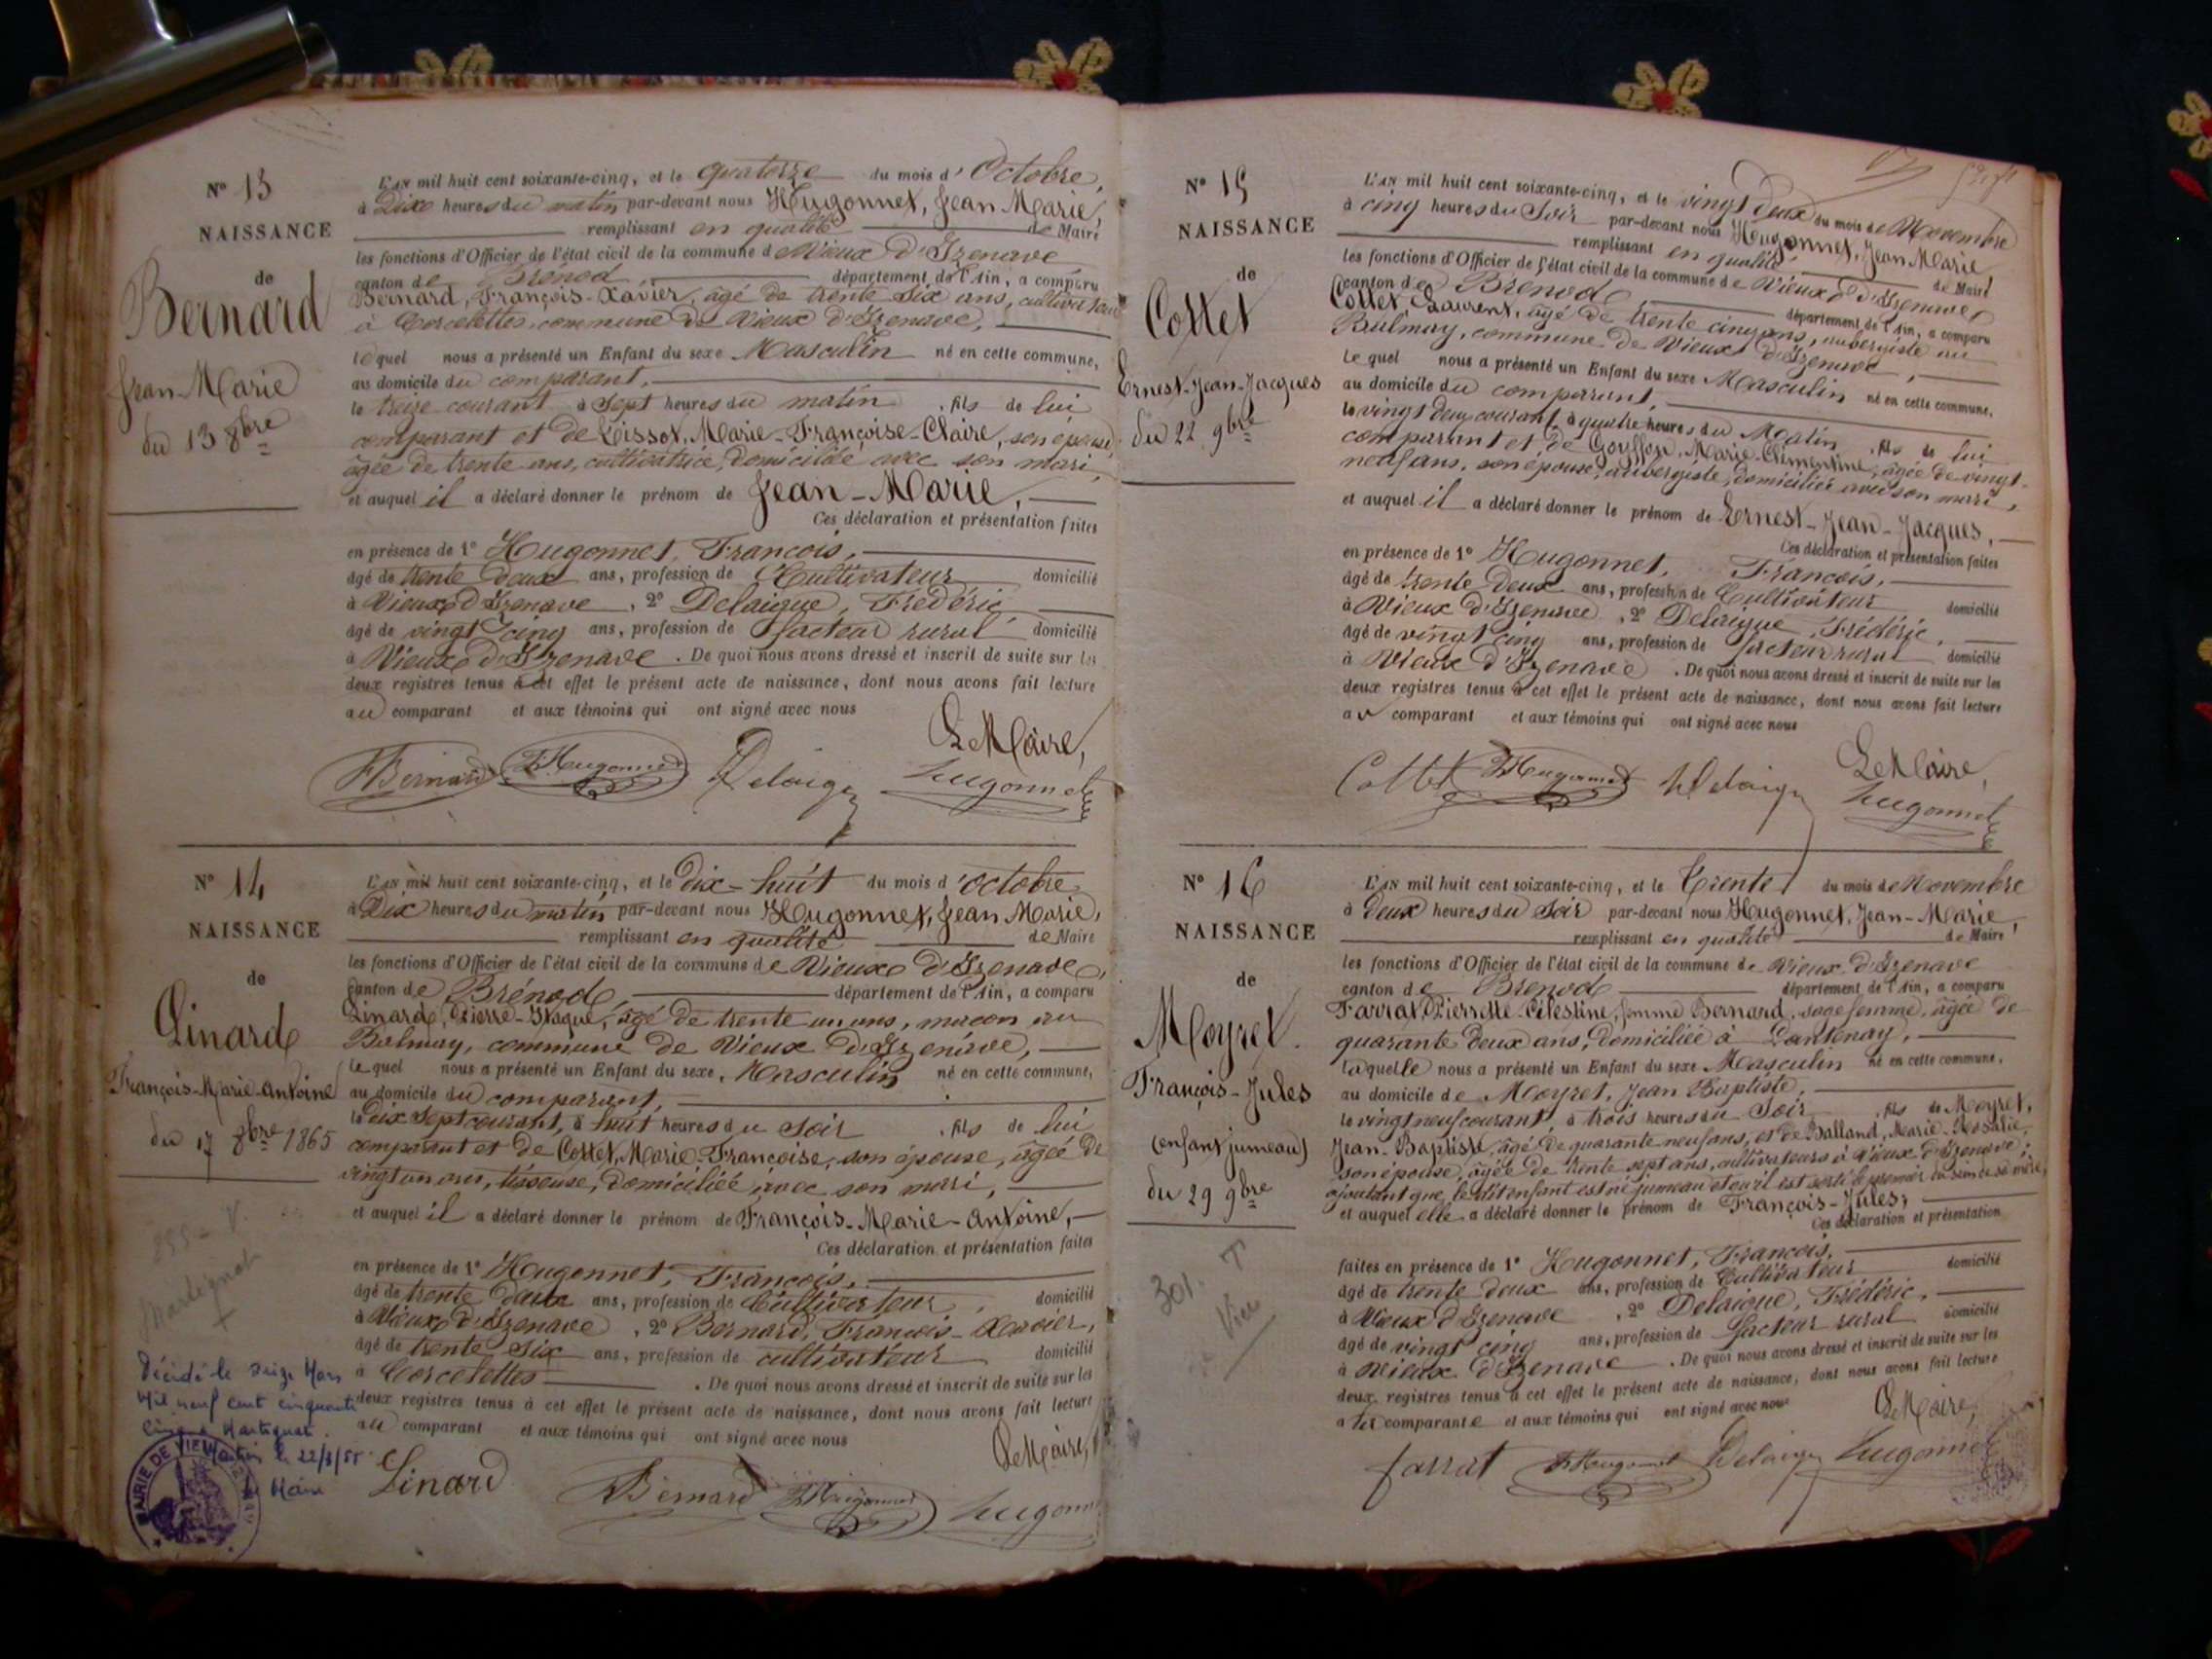 N° 13
NAISSANCE
de
Bernard
Jean-Marie
du 13 8bre
L'AN mil huit cent soixante-cinq, et le quatorze du mois d'Octobre,
à Dix heures du matin par-devant nous Hugonnet, Jean Marie,
remplissant en qualité de Maire
les fonctions d'Officier de l'état civil de la commune de Vieux d'Izenave
canton de Brénod, département de l'Ain, a comparu
Bernard, François-Xavier, âgé de trente six ans, cultivateur
à Corcelettes, commune de Vieux d'Izenave,
lequel nous a présenté un Enfant du sexe Masculin né en cette commune,
au domicile du comparant,
le treize courant à Sept heures du matin, fils de lui
comparant et de Loisset, Marie-Françoise-Claire, son épouse,
âgée de trente ans, cultivatrice, domiciliée avec son mari,
et auquel il a déclaré donner le prénom de Jean-Marie,
Ces déclaration et présentation faites
en présence de 1° Hugonnet, François,
âgé de trente deux ans, profession de Cultivateur domicilié
à Vieux d'Izenave, 2° Delaigue, Frédéric,
âgé de vingt cinq ans, profession de facteur rural domicilié
à Vieux d'Izenave. De quoi nous avons dressé et inscrit de suite sur les
deux registres tenus à cet effet le présent acte de naissance, dont nous avons fait lecture
au comparant et aux témoins qui ont signé avec nous
Le Maire,
FBernard FHugonnet Delaigue Hugonnet
N° 14
NAISSANCE
de
Linard
François-Marie-Antoine
du 17 8bre 1865
L'AN mil huit cent soixante-cinq, et le Dix-huit du mois d'octobre
à Dix heures du matin par-devant nous Hugonnet, Jean Marie,
remplissant en qualité de Maire
les fonctions d'Officier de l'état civil de la commune de Vieux d'Izenave,
canton de Brénod, département de l'Ain, a comparu
Linard, Pierre-Isaque, âgé de trente un ans, maçon au
Balmay, commune de Vieux d'Izenave,
lequel nous a présenté un Enfant du sexe Masculin né en cette commune,
au domicile du comparant,
le dix sept courant, à huit heures du soir, fils de lui
comparant et de Cottet, Marie-Françoise, son épouse, âgée de
vingt un ans, tisseuse, domiciliée avec son mari,
et auquel il a déclaré donner le prénom de François-Marie-Antoine,
Ces déclaration et présentation faites
en présence de 1° Hugonnet, François,
âgé de trente deux ans, profession de Cultivateur, domicilié
à Vieux d'Izenave, 2° Bernard, François-Xavier,
âgé de trente six ans, profession de cultivateur domicilié
à Corcelettes. De quoi nous avons dressé et inscrit de suite sur les
deux registres tenus à cet effet le présent acte de naissance, dont nous avons fait lecture
au comparant et aux témoins qui ont signé avec nous
Le Maire,
Linard Bernard FHugonnet Hugonnet
Martignat
Décédé le seize Mars
Mil neuf cent cinquante
cinq à Martignat.
le 22/3/55
Le Maire
MAIRIE DE VIEU
N° 15
NAISSANCE
de
Cottet
Ernest-Jean-Jacques
du 22 9bre
L'AN mil huit cent soixante-cinq, et le vingt deux du mois de Novembre
à cinq heures du Soir par-devant nous Hugonnet, Jean Marie
remplissant en qualité de Maire
les fonctions d'Officier de l'état civil de la commune de Vieux d'Izenave,
canton de Brénod, département de l'Ain, a comparu
Cottet, Laurent, âgé de trente cinq ans, aubergiste au
Balmay, commune de Vieux d'Izenave,
lequel nous a présenté un Enfant du sexe Masculin né en cette commune,
au domicile du comparant,
le vingt deux courant, à quatre heures du Matin, fils de lui
comparant et de Gouffon, Marie-Clémentine, âgée de vingt-
neuf ans, son épouse, aubergiste, domiciliée avec son mari,
et auquel il a déclaré donner le prénom de Ernest-Jean-Jacques,
Ces déclaration et présentation faites
en présence de 1° Hugonnet, François,
âgé de trente deux ans, profession de Cultivateur domicilié
à Vieux d'Izenave, 2° Delaigue, Frédéric,
âgé de vingt cinq ans, profession de facteur rural domicilié
à Vieux d'Izenave. De quoi nous avons dressé et inscrit de suite sur les
deux registres tenus à cet effet le présent acte de naissance, dont nous avons fait lecture
au comparant et aux témoins qui ont signé avec nous
Le Maire,
Cottet FHugonnet Delaigue Hugonnet
N° 16
NAISSANCE
de
Moyret.
François-Jules
(enfant jumeau)
du 29 9bre
301. T
Vieu
L'AN mil huit cent soixante-cinq, et le Trente du mois de Novembre
à Deux heures du Soir par-devant nous Hugonnet, Jean-Marie,
remplissant en qualité de Maire
les fonctions d'Officier de l'état civil de la commune de Vieux d'Izenave
canton de Brénod département de l'Ain, a comparu
Farrat, Pierrette-Célestine, femme Bernard, sage femme, âgée de
quarante deux ans, domiciliée à Lantenay,
laquelle nous a présenté un Enfant du sexe Masculin né en cette commune,
au domicile de Moyret, Jean Baptiste,
le vingt neuf courant, à trois heures du Soir, fils de Moyret,
Jean-Baptiste, âgé de quarante neuf ans, et de Balland, Marie-Rosalie,
son épouse, âgée de trente sept ans, cultivateurs à Vieux d'Izenave;
ajoutant que le dit enfant est né jumeau et qu'il est sorti le premier du sein de sa mère,
et auquel elle a déclaré donner le prénom de François-Jules;
Ces déclaration et présentation
faites en présence de 1° Hugonnet, François,
âgé de trente deux ans, profession de Cultivateur domicilié
à Vieux d'Izenave, 2° Delaigue, Frédéric,
âgé de vingt cinq ans, profession de facteur rural domicilié
à Vieux d'Izenave. De quoi nous avons dressé et inscrit de suite sur les
deux registres tenus à cet effet le présent acte de naissance, dont nous avons fait lecture
a la comparante et aux témoins qui ont signé avec nous
Le Maire,
farrat FHugonnet Delaigue Hugonnet